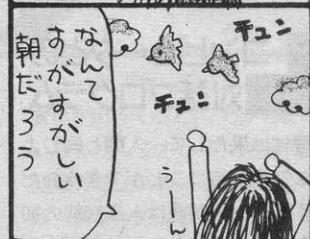 チュン
チュン
なんて
すがすがしい
朝だろう
うーん